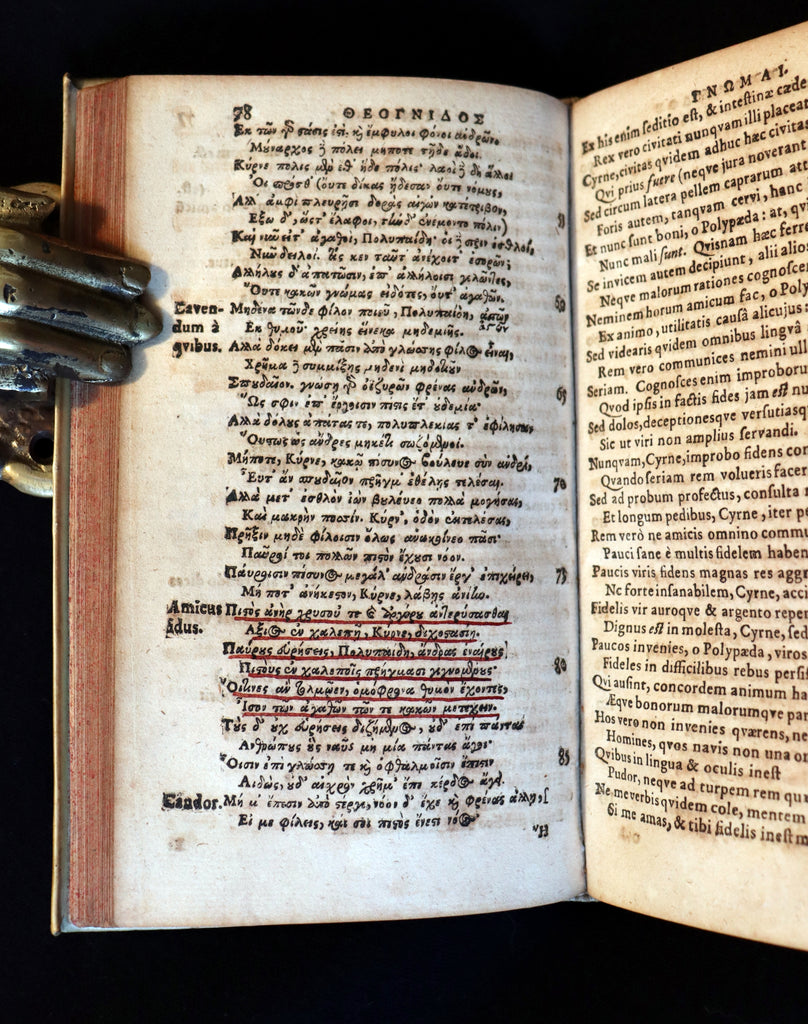 78 ΘΕΟΓΝΙΔΟΣ
Ἐκ τῶν γὸ στάσις ἐστὶ, κὶ ἔμφυλοι φόνοι ἀνδρῶν·
Μούναρχος δὲ πόλει μήποτε τῇδε ἅδοι.
Κύρνε πόλις μὲν ἔθ' ἥδε πόλις· λαοὶ δὲ δὴ ἄλλοι
Οἳ πρόσθ' (οὔτε δίκας ᾔδεσαν οὔτε νόμους,
Ἀλλ' ἀμφὶ πλευρῇσι δορὰς αἰγῶν κατέτριβον,
Ἔξω δ', ὥστ' ἔλαφοι, τήνδ' ἐνέμοντο πόλιν)
Καὶ νῦν εἰσ' ἀγαθοὶ, Πολυπαίδη· οἱ δὲ πρὶν ἐσθλοὶ,
Νῦν δειλοί. τίς κεν ταῦτ' ἀνέχοιτ' ἐσορῶν;
Ἀλλήλους δ' ἀπατῶσιν, ἐπ' ἀλλήλοισι γελῶντες,
Οὔτε κακῶν γνώμας εἰδότες, οὔτ' ἀγαθῶν. 60
Caven-
dum à
qvibus.
Μηδένα τῶνδε φίλον ποιεῦ, Πολυπαίδη, ἀστῶν
Ἐκ θυμοῦ χρείης ἕνεκα μηδεμιῆς.
Ἀλλὰ δόκει μὲν πᾶσιν ἀπὸ γλώσσης φίλος εἶναι,
Χρῆμα δὲ συμμίξῃς μηδενὶ μηδοτιοῦν
Σπουδαῖον. γνώσῃ γὸ ὀϊζυρῶν φρένας ἀνδρῶν, 65
Ὥς σφιν ἐπ' ἔργοισιν πίστις ἔτ' οὐδεμία·
Ἀλλὰ δόλους ἀπάτας τε, πολυπλεκίας τ' ἐφίλησαν,
Οὕτως ὡς ἄνδρες μηκέτι σωζόμενοι.
Μήποτε, Κύρνε, κακῷ πίσυνος βούλευε σὺν ἀνδρὶ,
Εὖτ' ἂν σπουδαῖον πρῆγμ' ἐθέλῃς τελέσαι. 70
Ἀλλὰ μετ' ἐσθλὸν ἰὼν βουλεύεο πολλὰ μογήσας,
Καὶ μακρὴν ποσσὶν, Κύρν', ὁδὸν ἐκτελέσας,
Πρῆξιν μηδὲ φίλοισιν ὅλως ἀνακοίνεο πᾶσι·
Παῦροί τοι πολλῶν πιστὸν ἔχουσι νόον.
Παύροισιν πίσυνος μεγάλ' ἀνδράσιν ἔργ' ἐπιχείρει, 75
Μή ποτ' ἀνήκεστον, Κύρνε, λάβῃς ἀνίην.
Amicus
fidus.
Πιστὸς ἀνὴρ χρυσοῦ τε κὶ ἀργύρου ἀντερύσασθαι
Ἄξιος ἐν χαλεπῇ, Κύρνε, διχοστασίῃ.
Παύρους εὑρήσεις, Πολυπαίδη, ἄνδρας ἑταίρους
Πιστοὺς ἐν χαλεποῖς πρήγμασι γιγνομένους· 80
Οἵτινες ἂν τολμῷεν, ὁμόφρονα θυμὸν ἔχοντες,
Ἶσον τῶν ἀγαθῶν τῶν τε κακῶν μετέχειν.
Τοὺς δ' οὐχ εὑρήσεις διζήμενος, οὐδ' ἐπὶ πάντας
Ἀνθρώπους οὓς ναῦς μὴ μία πάντας ἄγοι·
Οἷσιν ἐπὶ γλώσσῃ τε κὶ ὀφθαλμοῖσιν ἔπεστιν 85
Αἰδὼς, οὐδ' αἰσχρὸν χρῆμ' ἔπι κέρδος ἄγει.
Candor.
Μή μ' ἔπεσιν μὲν στέργε, νόον δ' ἔχε κὶ φρένας ἄλλῃ,
Εἴ με φιλεῖς, καί σοι πιστὸς ἔνεστι νόος·
Ἢ
ΓΝΩΜΑΙ.
Ex his enim seditio est, & intestinæ cæde
Rex vero civitati nunqvam illi placeat
Cyrne, civitas qvidem adhuc hæc civitas
Qvi prius fuere (neqve jura noverant
Sed circum latera pellem caprarum att
Foris autem, tanqvam cervi, hanc
Et nunc sunt boni, o Polypæda: at, qv
Nunc mali sunt. Qvisnam hæc ferre
Se invicem autem decipiunt, alii alios
Neqve malorum rationes cognosce
Neminem horum amicum fac, o Poly
Ex animo, utilitatis causâ alicujus:
Sed videaris qvidem omnibus lingvâ
Rem vero communices nemini ull
Seriam. Cognosces enim improboru
Qvod ipsis in factis fides jam est nu
Sed dolos, deceptionesqve versutiasq
Sic ut viri non amplius servandi.
Nunqvam, Cyrne, improbo fidens con
Qvando seriam rem volueris facer
Sed ad probum profectus, consulta
Et longum pedibus, Cyrne, iter pe
Rem verò ne amicis omnino commu
Pauci sane è multis fidelem haben
Paucis viris fidens magnas res aggr
Ne forte insanabilem, Cyrne, acci
Fidelis vir auroqve & argento repen
Dignus est in molesta, Cyrne, sed
Paucos invenies, o Polypæda, viros
Fideles in difficilibus rebus persi
Qvi ausint, concordem animum ha
Æqve bonorum malorumqve par
Hos vero non invenies qværens, ne
Homines, qvos navis non una on
Qvibus in lingua & oculis inest
Pudor, neqve ad turpem rem qu
Ne me verbis qvidem cole, mentem
Si me amas, & tibi fidelis inest m